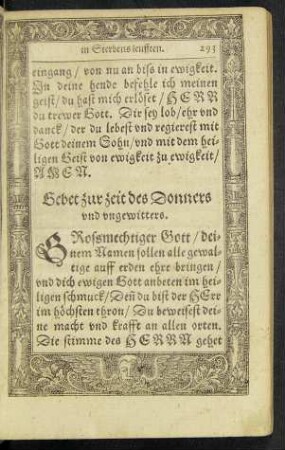 in Sterbens leufften. 293
eingang / von nu an biſs in ewigkeit.
In deine hende befehle ich meinen
geiſt / du haſt mich erlöſet / HERR
du trewer Gott. Dir ſey lob / ehr vnd
danck / der du lebeſt vnd regiereſt mit
Gott deinem Sohn / vnd mit dem hei-
ligen Geiſt von ewigkeit zu ewigkeit /
AMEN.
Gebet zur zeit des Donners
vnd vngewitters.
GRoſsmechtiger Gott / dei-
nem Namen ſollen alle gewal-
tige auff erden ehre bringen /
vnd dich ewigen Gott anbeten im hei-
ligen ſchmuck / Deñ du biſt der HErr
im höchſten thron / Du beweiſeſt dei-
ne macht vnd krafft an allen orten.
Die ſtimme des HERRN gehet